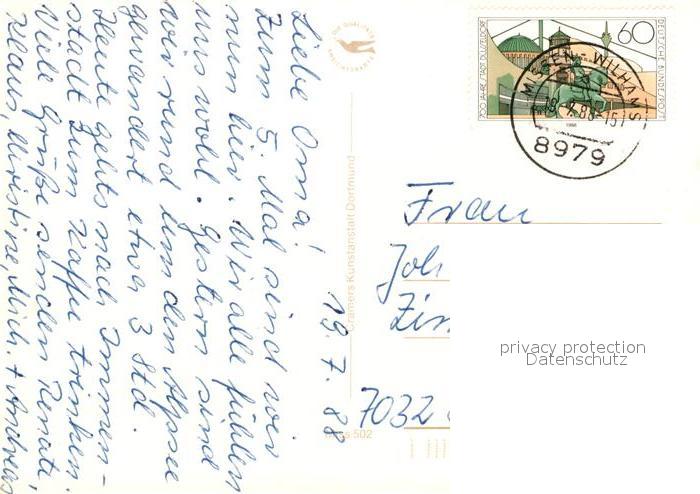 19.7.88
Liebe Oma!
Zum 5. Mal sind wir
nun hier. Wir alle fühlen
uns wohl. Gestern sind
wir rund um den Alpsee
gewandert etwa 3 Std.
Heute gehts nach Immen-
stadt zum Kaffee trinken.
Viele Grüße senden Renate,
Klaus, Christine, Mich. + Andreas
DIE QUALITÄTS
ANSICHTSKARTE
Cramers Kunstanstalt Dortmund
502
700 JAHRE STADT DÜSSELDORF
60
DEUTSCHE BUNDESPOST
1988
MISSEN-WILHAMS
8979
Frau
Joh
Zim
7032
privacy protection
Datenschutz